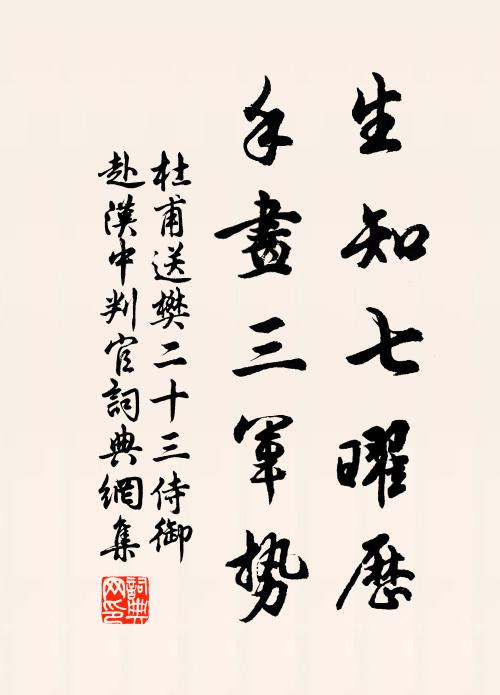 生知七曜歷
手畫三軍勢
杜甫送樊二十三侍御
赴漢中判官詞典網集
詞典
网印